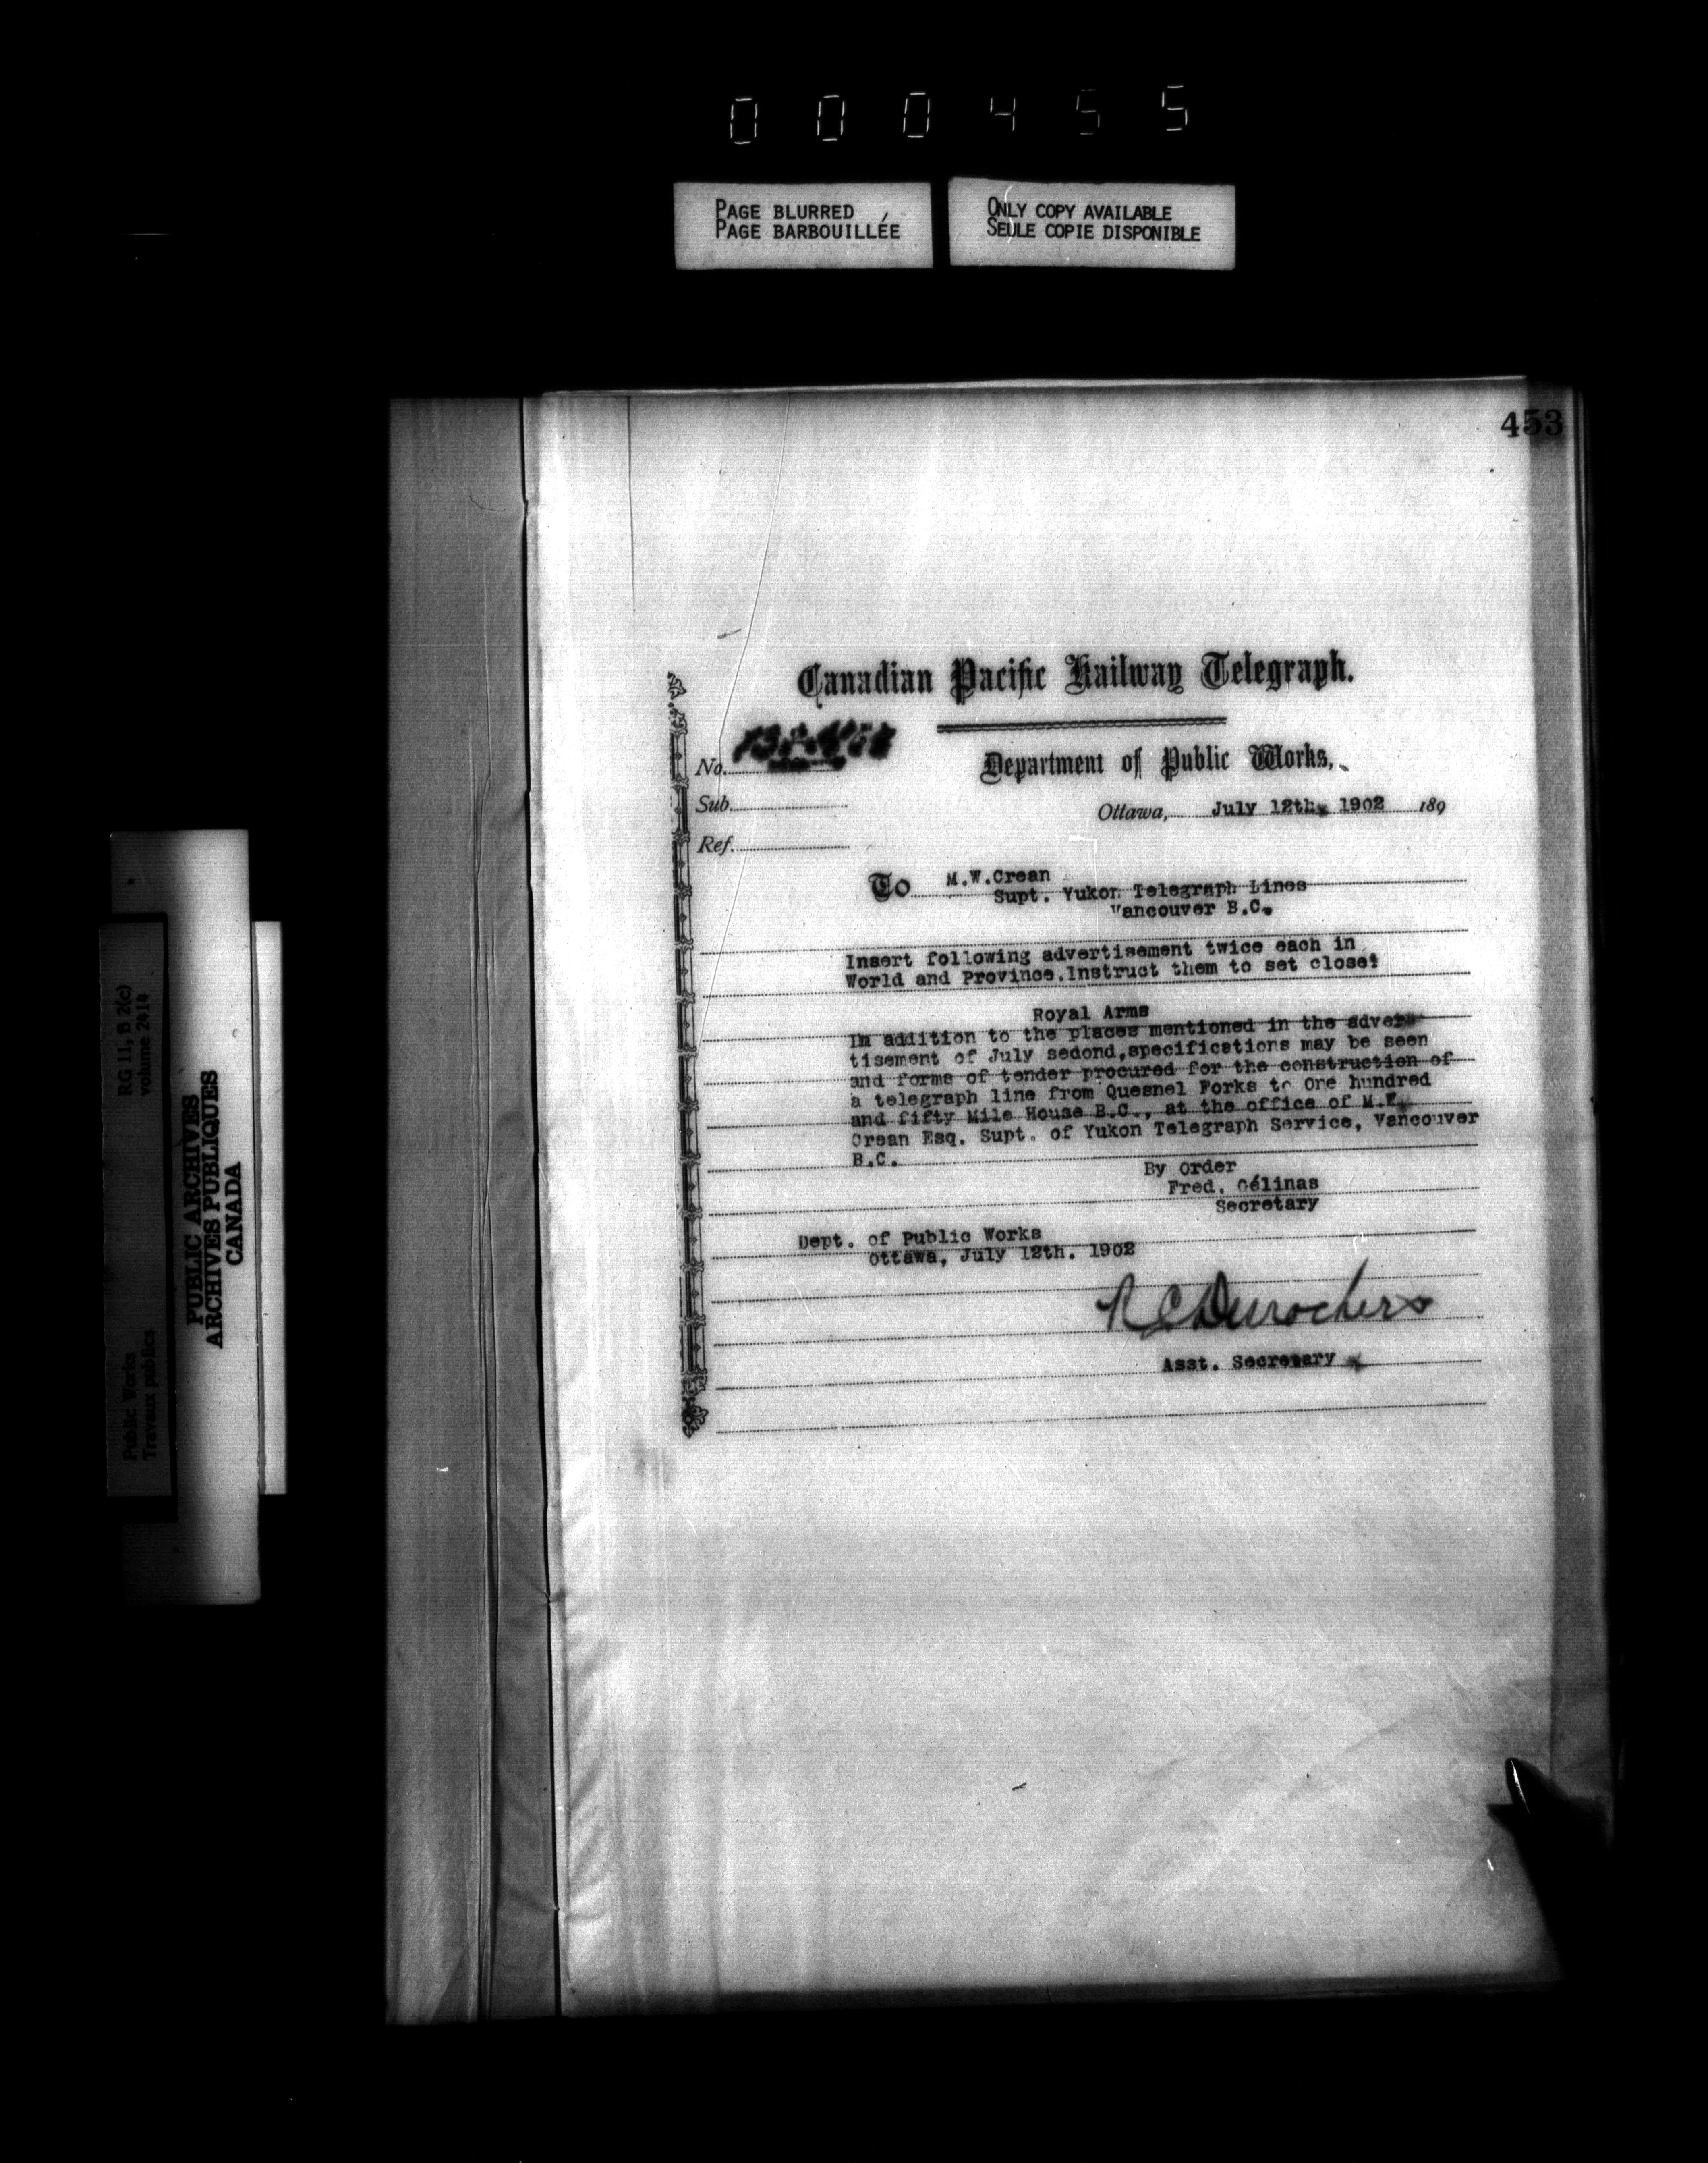 000455
PAGE BLURRED
PAGE BARBOUILLÉE
ONLY COPY AVAILABLE
SEULE COPIE DISPONIBLE
453
Canadian Pacific Railway Telegraph.
No.
Department of Public Works,
Sub.
Ottawa, July 12th, 1902 189
Ref.
To M.W.Crean
Supt. Yukon Telegraph Lines
Vancouver B.C.
Insert following advertisement twice each in
World and Province.Instruct them to set close:
Royal Arms
In addition to the places mentioned in the adver-
tisement of July sedond,specifications may be seen
and forms of tender procured for the construction of
a telegraph line from Quesnel Forks to One hundred
and fifty Mile House B.C., at the office of M.W.
Crean Esq. Supt. of Yukon Telegraph Service, Vancouver
B.C.
By Order
Fred. Gélinas
Secretary
Dept. of Public Works
Ottawa, July 12th. 1902
R C Desrochers
Asst. Secretary
RG 11, B 2(c)
volume 2414
Public Works
Travaux publics
PUBLIC ARCHIVES
ARCHIVES PUBLIQUES
CANADA